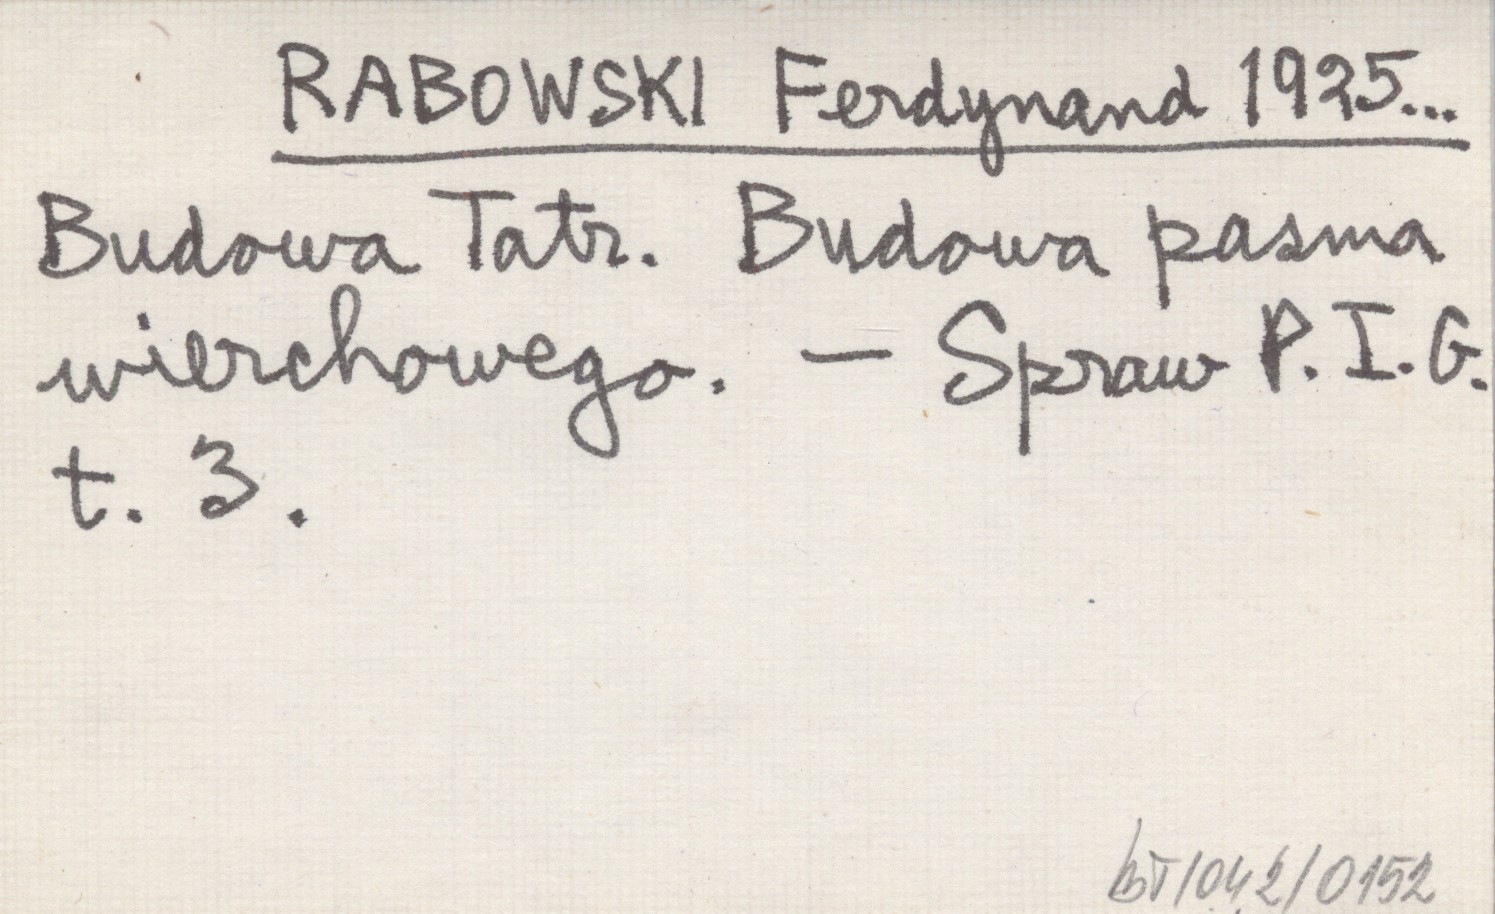 RABOWSKI Ferdynand 1925...
Budowa Tatr. Budowa pasma
wierchowego. — Spraw P.I.G.
t. 3.
bT/042/0152